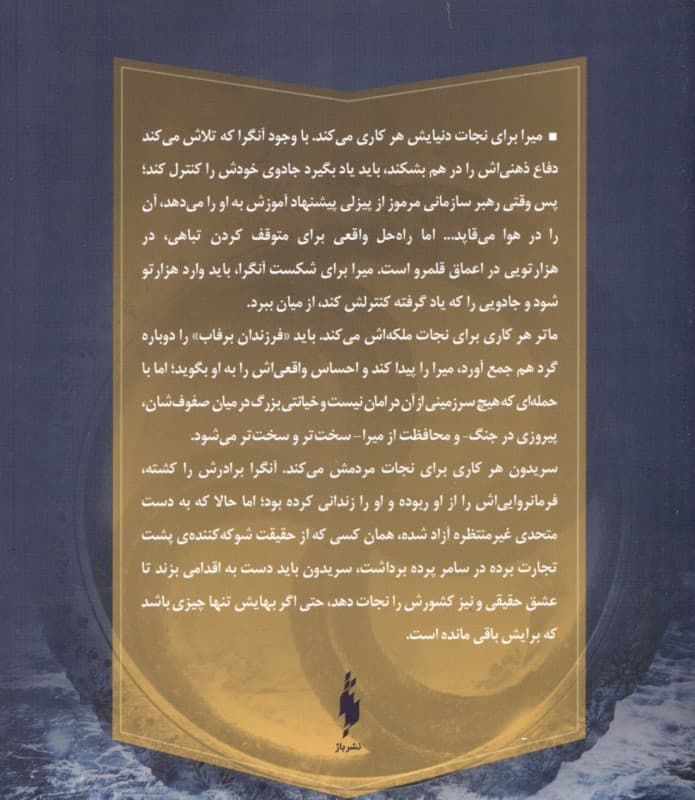 ▪ میرا برای نجات دنیایش هر کاری می‌کند. با وجود آنگرا که تلاش می‌کند
دفاع ذهنی‌اش را در هم بشکند، باید یاد بگیرد جادوی خودش را کنترل کند؛
پس وقتی رهبر سازمانی مرموز از پیزلی پیشنهاد آموزش به او را می‌دهد، آن
را در هوا می‌قاپد... اما راه‌حل واقعی برای متوقف کردن تباهی، در
هزارتویی در اعماق قلمرو است. میرا برای شکست آنگرا، باید وارد هزارتو
شود و جادویی را که یاد گرفته کنترلش کند، از میان ببرد.
ماتر هر کاری برای نجات ملکه‌اش می‌کند. باید «فرزندان برفاب» را دوباره
گرد هم جمع آورد، میرا را پیدا کند و احساس واقعی‌اش را به او بگوید؛ اما با
حمله‌ای که هیچ سرزمینی از آن در امان نیست و خیانتی بزرگ در میان صفوف‌شان،
پیروزی در جنگ- و محافظت از میرا- سخت‌تر و سخت‌تر می‌شود.
سریدون هر کاری برای نجات مردمش می‌کند. آنگرا برادرش را کشته،
فرمانروایی‌اش را از او ربوده و او را زندانی کرده بود؛ اما حالا که به دست
متحدی غیرمنتظره آزاد شده، همان کسی که از حقیقت شوکه‌کننده‌ی پشت
تجارت برده در سامر پرده برداشت، سریدون باید دست به اقدامی بزند تا
عشق حقیقی و نیز کشورش را نجات دهد، حتی اگر بهایش تنها چیزی باشد
که برایش باقی مانده است.
نشر باژ